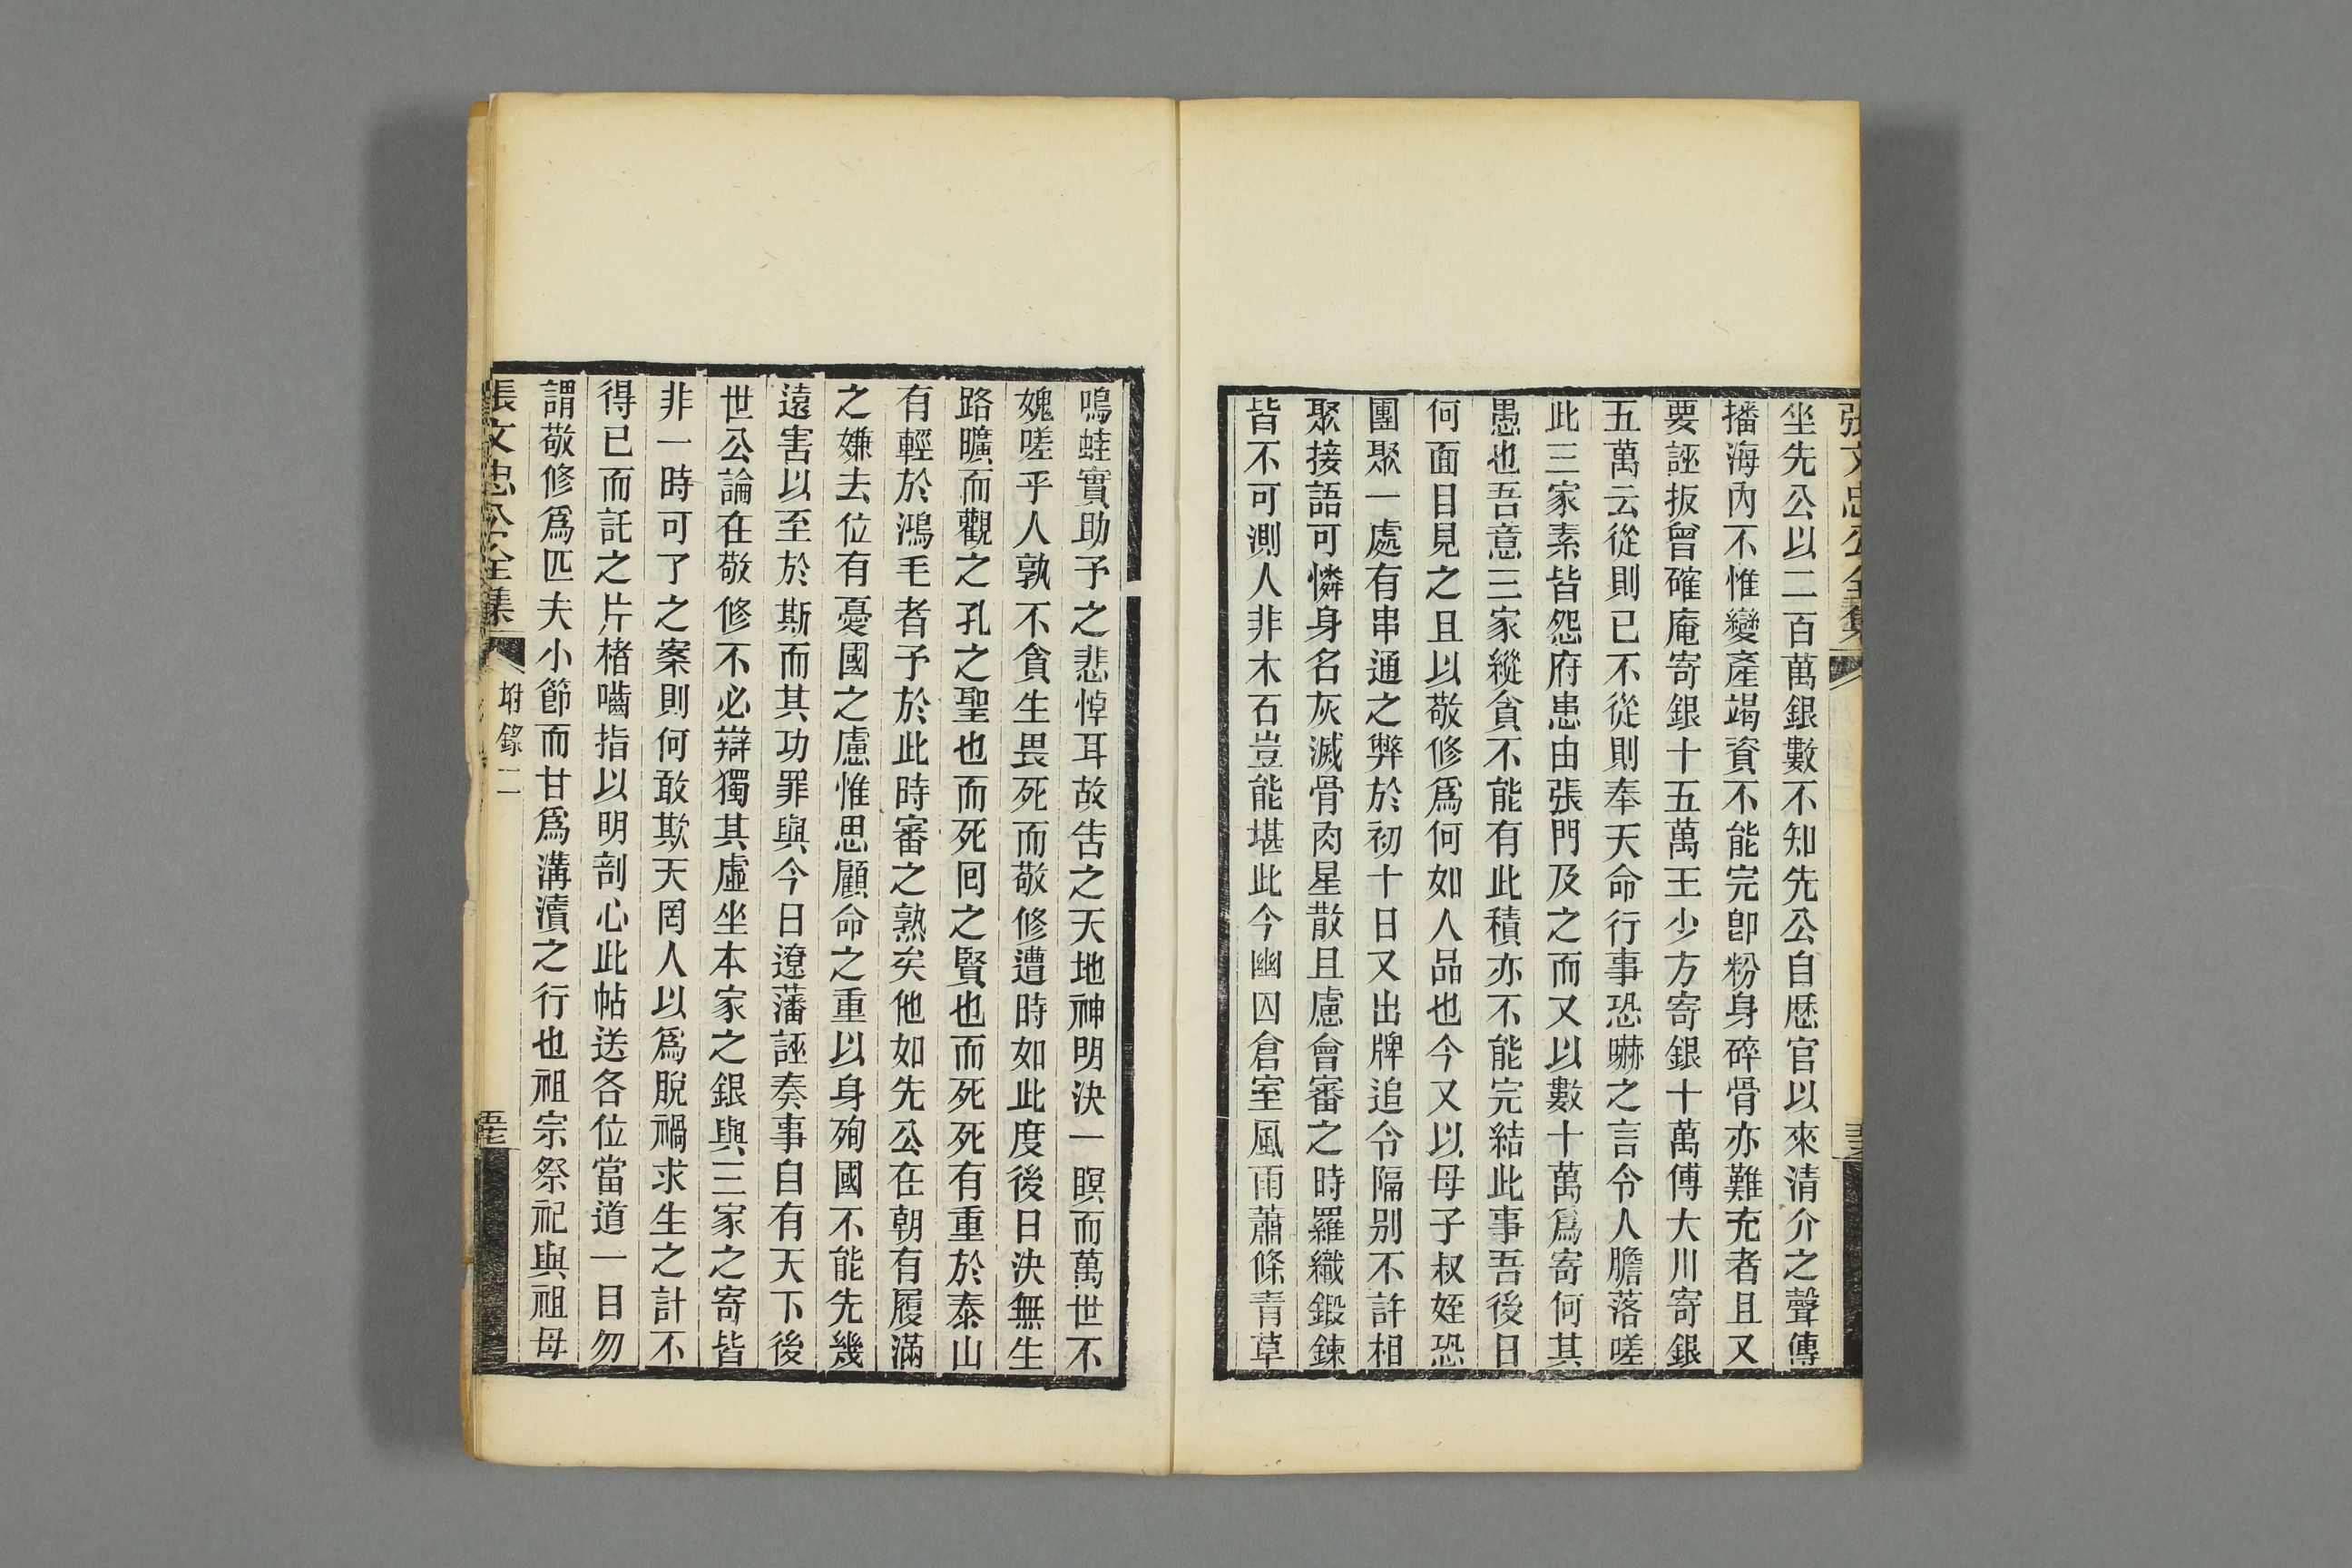 張文忠公全集
坐先公以二百萬銀數不知先公自歷官以來清介之聲傳
播海內不惟變產竭資不能完卽粉身碎骨亦難充者且又
要誣扳曾確庵寄銀十五萬王少方寄銀十萬傅大川寄銀
五萬云從則已不從則奉天命行事恐嚇之言令人膽落嗟
此三家素皆怨府患由張門及之而又以數十萬爲寄何其
愚也吾意三家縱貪不能有此積亦不能完結此事吾後日
何面目見之且以敬修爲何如人品也今又以母子叔姪恐
團聚一處有串通之弊於初十日又出牌追令隔别不許相
聚接語可憐身名灰滅骨肉星散且慮會審之時羅織鍛鍊
皆不可測人非木石豈能堪此今幽囚倉室風雨蕭條青草
鳴蛙實助予之悲悼耳故告之天地神明決一瞑而萬世不
媿嗟乎人孰不貪生畏死而敬修遭時如此度後日決無生
路曠而觀之孔之聖也而死回之賢也而死死有重於泰山
有輕於鴻毛者予於此時審之熟矣他如先公在朝有履滿
之嫌去位有憂國之慮惟思顧命之重以身殉國不能先幾
遠害以至於斯而其功罪與今日遼藩誣奏事自有天下後
世公論在敬修不必辯獨其虛坐本家之銀與三家之寄皆
非一時可了之案則何敢欺天罔人以爲脫禍求生之計不
得已而託之片楮嚙指以明剖心此帖送各位當道一目勿
謂敬修爲匹夫小節而甘爲溝瀆之行也祖宗祭祀與祖母
張文忠公全集
坿錄二
五七